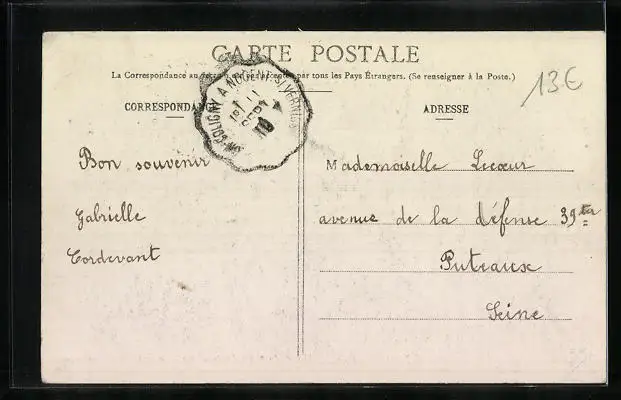 CARTE POSTALE
La Correspondance au recto n'est pas acceptée par tous les Pays Étrangers. (Se renseigner à la Poste.)
13€
CORRESPONDANCE
ADRESSE
COLIGNY A NOGENT-S/VERNISSON
1re
11
SEPT
10
Bon souvenir
Gabrielle
Cordevant
Mademoiselle Lecœur
avenue de la défense 39ter
Puteaux
Seine